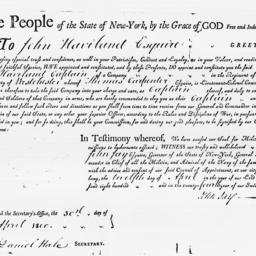 e People of the State of New-York, by the Grace of GOD Free and Inde
To John Haviland Esquire GREET
special trust and confidence, as well in your Patriotism, Conduct and
faithful Service, HAVE appointed and constituted, and by these Presents, DO appoint and constitute you the said
Haviland Captain of a Company in the Regiment of
of Westchester whereof Thomas Carpenter Esquire, is Lieutenant-Colonel Com
therefore to take the said Company into your charge and care, as Captain thereof, and duly
and Soldiers of that Company in arms, who are hereby commanded to obey you as their Captain
and follow such Orders and Directions as you shall from time to time receive from our General and Commander in
of our said State, or any other your superior Officer, according to the Rules and Discipline of War, in pursu
in you; and for so doing, this shall be your Commission, for and during our good pleasure, to be signified by our C
In Testimony whereof, We have caused our Seal for Milit
to be hereunto affixed; WITNESS our trusty and well-beloved
John Jay Esquire, Governor of the State of New-York, General
mander in Chief of all the Militia, and Admiral of the Navy of the same
with the advice and consent of our said Council of Appointment, at our
bany, the twelfth day of April in the year of our Lord
sand eight hundred and in the twenty-fourth year of our Inde
John Jay
the Secretary's Office, the 30th day of
April 1800.
Daniel Hale SECRETARY.